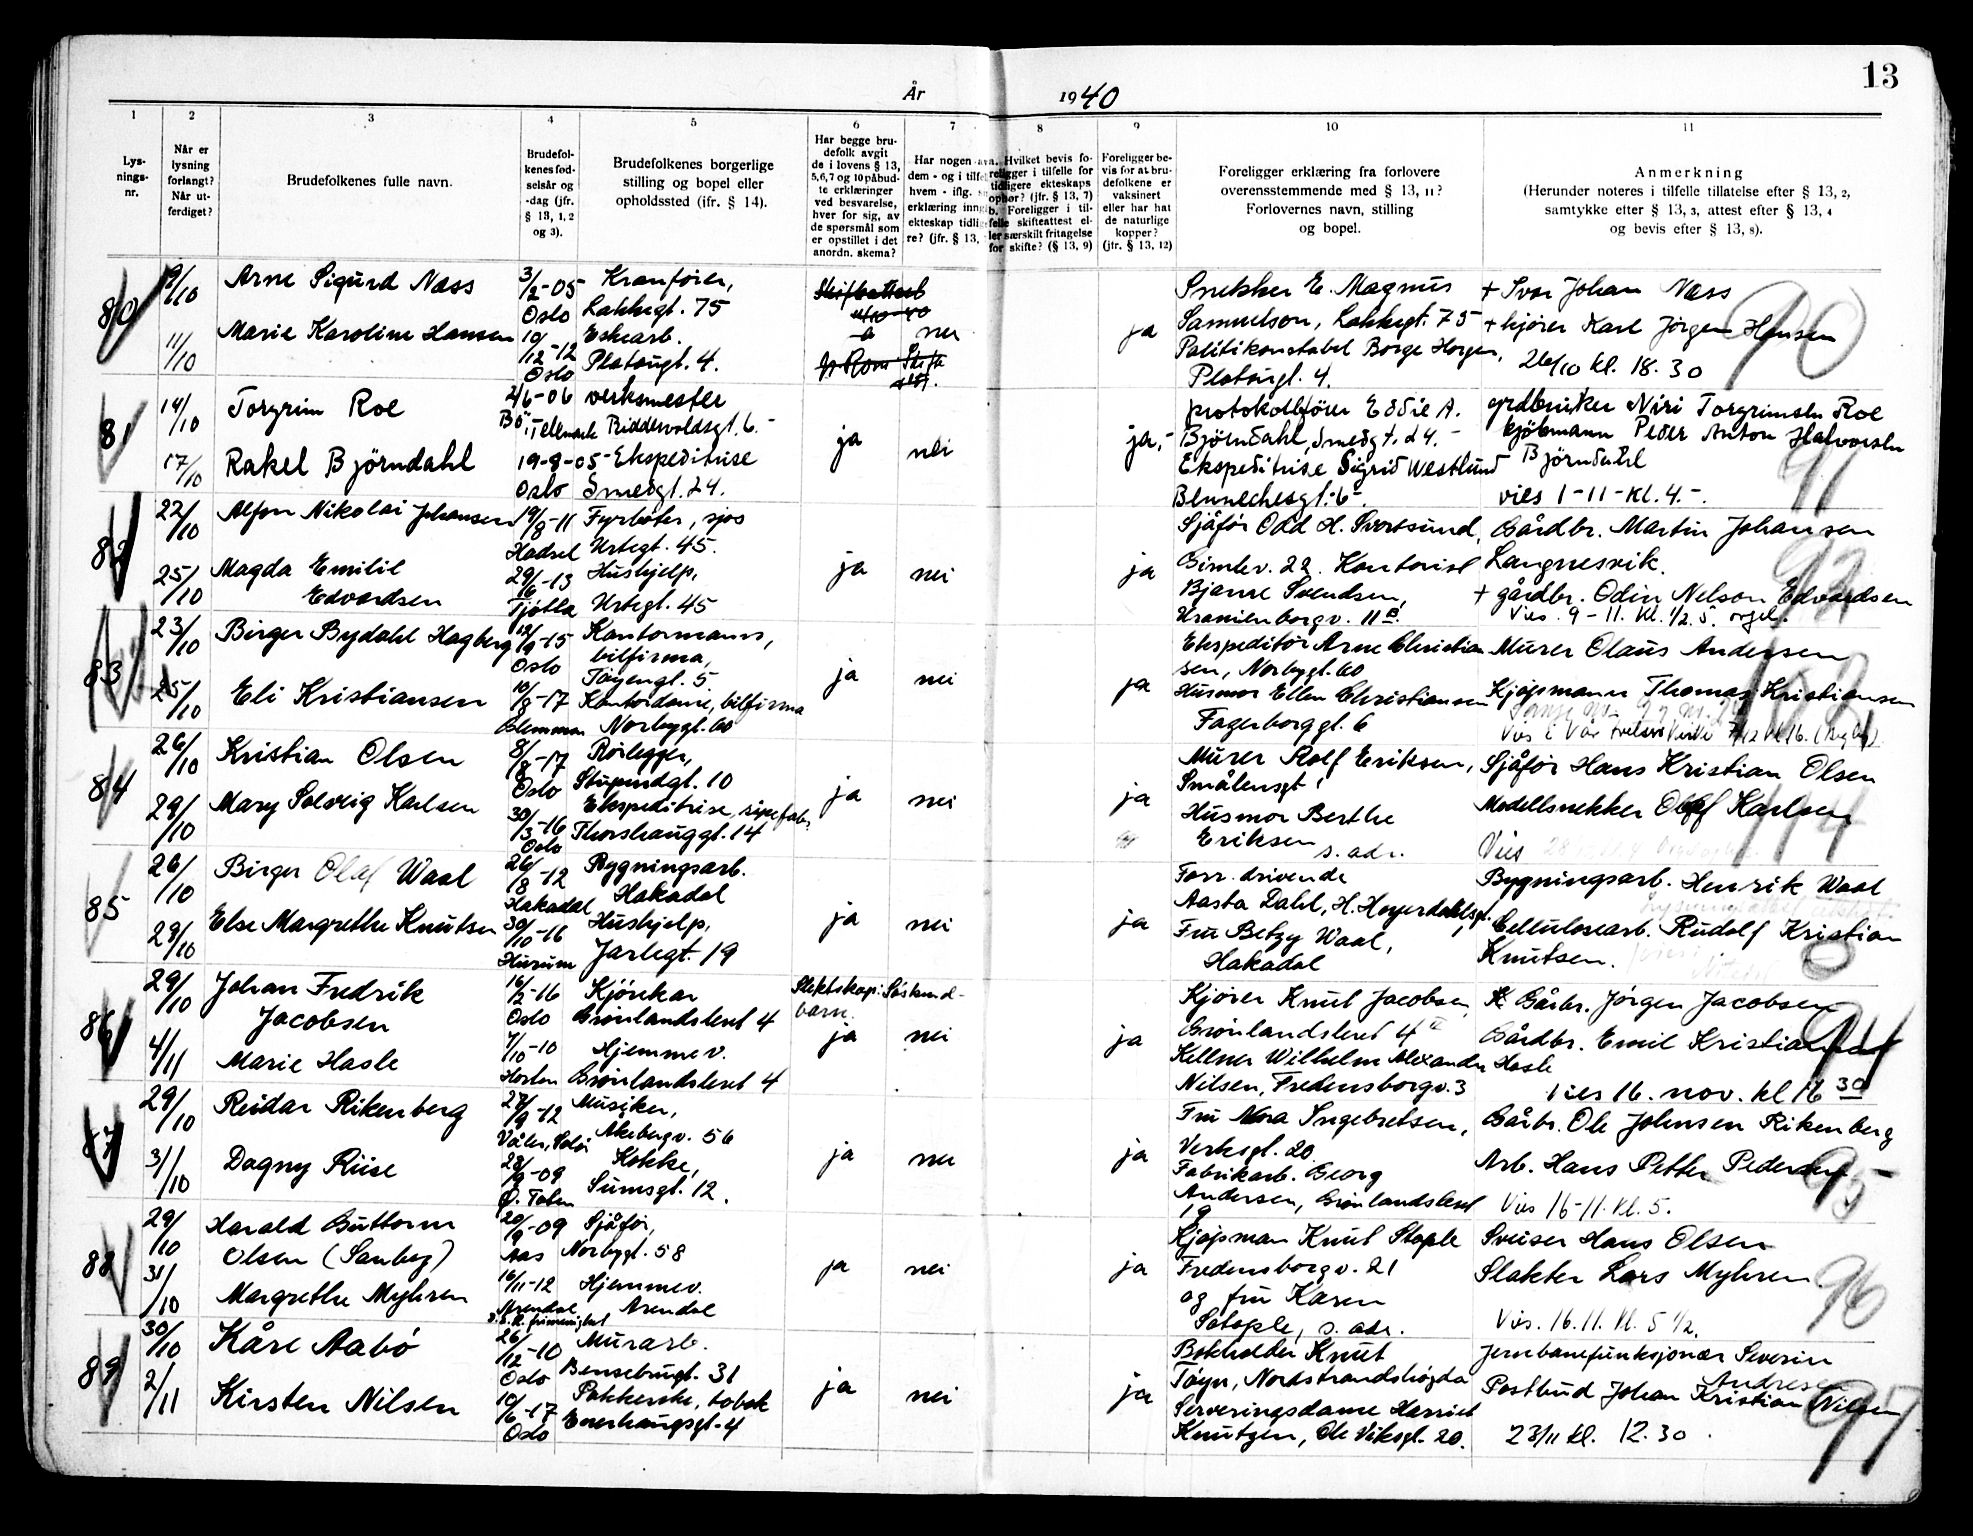 13
År 1940
1 2 3 4 5 6 7 8 9 10 11
Lys-
nings-
nr.
Når er
lysning
forlangt?
Når ut-
ferdiget?
Brudefolkenes fulle navn.
Brudefol-
kenes fød-
selsår og
-dag (jfr.
§ 13, 1, 2
og 3).
Brudefolkenes borgerlige
stilling og bopel eller
opholdssted (ifr. § 14).
Har begge bru-
defolk avgit
de i lovens § 13,
5,6,7 og 10 påbud-
te erklæringer
ved besvarelse,
hver for sig, av
de spørsmål som
er opstillet i det
anordn. skema?
Har nogen av
dem - og i tilfe
hvem - iflg.
erklæring inng
ekteskap tidlig
re? (jfr. § 13,
a. Hvilket bevis fo-
religger i tilfelle for
tidligere ekteskaps
ophør? (jfr. § 13, 7)
b. Foreligger i til-
felle skifteattest el-
ler særskilt fritagelse
for skifte? (§ 13, 9)
Foreligger be-
vis for at bru-
defolkene er
vaksinert
eller har hat
de naturlige
kopper?
(jfr. § 13, 12)
Foreligger erklæring fra forlovere
overensstemmende med § 13, 11?
Forlovernes navn, stilling
og bopel.
Anmerkning
(Herunder noteres i tilfelle tillatelse efter § 13, 2,
samtykke efter § 13, 3, attest efter § 13, 4
og bevis efter § 13, 8).
80
9/10
11/10
Arne Sigurd Næss
Marie Karoline Hansen
3/2-05
Oslo
19/12-12
Oslo
Kranfører,
Lakkegt. 75
Eskearb.
Platougt. 4.
Skifteattest
nei
ja
Snekker E. Magnus
Samuelson, Lakkegt. 75
Politikonstabel Borge Horgen,
Platougt. 4.
+ Ivar Johan Næss
+ kjører Karl Jörgen Hansen
26/10 kl. 18.30
90
81
14/10
17/10
Torgrim Roe
Rakel Björndahl
2/6-06
Bö, Telemark
19-8-05
Oslo
verksmester
Riddervoldsgt. 6.-
Ekspeditrise
Smedgt. 24.
ja
nei
ja,-
protokollförer Eddie A.
Björndahl, Smedgt. 24.-
Ekspeditrise Sigrid Westlund
Bennechesgt. 6-
grdbruker Niri Torgrimsen Roe
kjöbmann Peder Anton Halvorsen
Björndahl
vies 1-11-kl. 4.-.
91
82
22/10
25/10
Alfon Nikolai Johansen
Magda Emilie
Edvardsen
19/8-11
Hadsel
29/6-13
Tjøtta
Fyrbøter, sjøs
Urtegt. 45.
Hushjelp,
Urtegt. 45
ja
nei
ja
Sjåfør Odd H. Svortsund,
Gimlev. 22. Kontorist
Bjarne Svendsen,
Uranienborgv. 11 B.
Gårdbr. Martin Johansen
Langnesvik.
+ gårdbr. Odin Nelson Edvardsen
Vies. 9-11. kl. 1/2 5. orgel.
83
23/10
25/10
Birger Bydahl Hagberg
Eli Kristiansen
12/9-15
Oslo
10/8-17
Glemmen
Kontormann,
bilfirma,
Töyengt. 5
Kontordame, bilfirma
Norbygt. 60
ja
nei
ja
Ekspeditör Arne Christian
sen, Norbygt. 60
Husmor Ellen Christiansen
Fagerborggt. 6
Murer Olaus Andersen
Kjøpmann Thomas Kristiansen
Vies i Vår Frelsers Kirke 7/12 kl 16.
84
26/10
29/10
Kristian Olsen
Mary Solveig Karlsen
8/8-17
Oslo
30/3-16
Oslo
Rørlegger,
Stupendgt. 10
Ekspeditrise, såpefab.
Thorshauggt. 14
ja
nei
ja
Murer Rolf Eriksen,
Smålensgt
Husmor Berthe
Eriksen
s. adr.
Sjåfør Hans Kristian Olsen
Modellsnekker Olaf Karlsen
Vies
114
85
26/10
29/10
Birger Olaf Waal
Else Margrethe Knutsen
26/8-12
Hakadal
30/10-16
Hurum
Bygningsarb.
Hakadal
Hushjelp,
Jarlegt. 19
ja
nei
ja
Forr. drivende
Aasta Dahl, H. Heyerdahlsgt.
Fru Betzy Waal,
Hakadal
Bygningsarb. Henrik Waal
Cellulosearb. Rudolf Kristian
Knutsen.
86
29/10
4/11
Johan Fredrik
Jacobsen
Marie Hasle
16/2-16
Oslo
7/10-10
Horten
Kjörekar
Grønlandsleret 4
Hjemmev.
Grønlandsleret 4
Slektskap: Söskend-
barn.
ja
nei
ja
Kjører Knut Jacobsen,
Grønlandsleret 4
Kellner Wilhelm Alexander
Nilsen, Fredensborgv. 3
Gårbr. Jörgen Jacobsen
Gårdbr. Emil Kristiansen
Hasle
vies 16. nov. kl 16 30
94
87
29/10
31/10
Reidar Rikenberg
Dagny Riise
27/9-12
Våler, Solør
28/9-09
Ø. Toten
Musiker,
Akebergv. 56
Kokke,
Sumsgt. 12.
ja
nei
ja
Fru Nora Ingebretsen,
Verksgt. 20.
Fabrikarb. Georg
Andersen, Grønlandsleret
19
Gårbr. Ole Johnsen Rikenberg
Arb. Hans Petter Pedersen
Vies 16-11. kl. 5.
95
88
29/10
31/10
Harald Guttorm
Olsen (Sanberg)
Margrethe Myhren
20/9-09
Aas
16/11-12
Arendal
Sjåför,
Norbygt. 58
Hjemmev.
Arendal
ja
nei
ja
Kjøpman Knut Stople
Fredensborgv. 21
og fru Karen
Stople, s. adr.
Sveiser Hans Olsen
Slakter Lars Myhren
Vies. 16.11. kl. 5 1/2.
96
89
30/10
2/11
Kåre Aabö
Kirsten Nilsen
26/12-10
Oslo
10/6-17
Oslo
Murarb.
Bensebrugt. 31
Pakkerske, tobak
Enerhaugsgt. 4
ja
nei
ja
Bokholder Knut
Töyn, Nordstrandshögda
Serveringsdame Harriet
Knutzen, Ole Viksgt. 20.
Jernbanefunksjonær Severin
Andresen
Postbud Johan Kristian Nilsen
23/11 kl. 12.30.
97